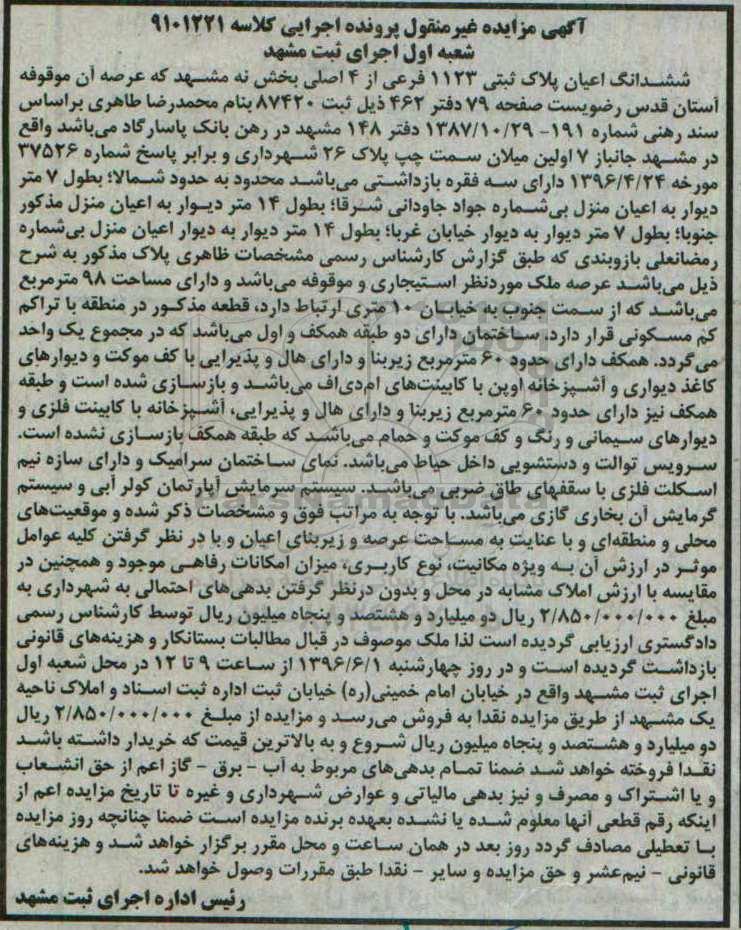 آگهی مزایده غیرمنقول پرونده اجرایی کلاسه ۹۱۰۱۲۲۱
شعبه اول اجرای ثبت مشهد
ششدانگ اعیان پلاک ثبتی ۱۱۲۳ فرعی از ۴ اصلی بخش نه مشهد که عرصه آن موقوفه
آستان قدس رضویست صفحه ۷۹ دفتر ۴۶۲ ذیل ثبت ۸۷۴۲۰ بنام محمدرضا طاهری براساس
سند رهنی شماره ۱۹۱- ۱۳۸۷/۱۰/۲۹ دفتر ۱۴۸ مشهد در رهن بانک پاسارگاد می‌باشد واقع
در مشهد جانباز ۷ اولین میلان سمت چپ پلاک ۲۶ شهرداری و برابر پاسخ شماره ۳۷۵۲۶
مورخه ۱۳۹۶/۴/۲۴ دارای سه فقره بازداشتی می‌باشد محدود به حدود شمالا؛ بطول ۷ متر
دیوار به اعیان منزل بی‌شماره جواد جاودانی شرقا؛ بطول ۱۴ متر دیوار به اعیان منزل مذکور
جنوبا؛ بطول ۷ متر دیوار به دیوار خیابان غربا؛ بطول ۱۴ متر دیوار به دیوار اعیان منزل بی‌شماره
رمضانعلی بازوبندی که طبق گزارش کارشناس رسمی مشخصات ظاهری پلاک مذکور به شرح
ذیل می‌باشد عرصه ملک موردنظر استیجاری و موقوفه می‌باشد و دارای مساحت ۹۸ مترمربع
می‌باشد که از سمت جنوب به خیابان ۱۰ متری ارتباط دارد، قطعه مذکور در منطقه با تراکم
کم مسکونی قرار دارد. ساختمان دارای دو طبقه همکف و اول می‌باشد که در مجموع یک واحد
می‌گردد. همکف دارای حدود ۶۰ مترمربع زیربنا و دارای هال و پذیرایی با کف موکت و دیوارهای
کاغذ دیواری و آشپزخانه اوپن با کابینت‌های ام‌دی‌اف می‌باشد و بازسازی شده است و طبقه
همکف نیز دارای حدود ۶۰ مترمربع زیربنا و دارای هال و پذیرایی، آشپزخانه با کابینت فلزی و
دیوارهای سیمانی و رنگ و کف موکت و حمام می‌باشد که طبقه همکف بازسازی نشده است.
سرویس توالت و دستشویی داخل حیاط می‌باشد. نمای ساختمان سرامیک و دارای سازه نیم
اسکلت فلزی با سقفهای طاق ضربی می‌باشد. سیستم سرمایش آپارتمان کولر آبی و سیستم
گرمایش آن بخاری گازی می‌باشد. با توجه به مراتب فوق و مشخصات ذکر شده و موقعیت‌های
محلی و منطقه‌ای و با عنایت به مساحت عرصه و زیربنای اعیان و با در نظر گرفتن کلیه عوامل
موثر در ارزش آن به ویژه مکانیت، نوع کاربری، میزان امکانات رفاهی موجود و همچنین در
مقایسه با ارزش املاک مشابه در محل و بدون درنظر گرفتن بدهی‌های احتمالی به شهرداری به
مبلغ ۲/۸۵۰/۰۰۰/۰۰۰ ریال دو میلیارد و هشتصد و پنجاه میلیون ریال توسط کارشناس رسمی
دادگستری ارزیابی گردیده است لذا ملک موصوف در قبال مطالبات بستانکار و هزینه‌های قانونی
بازداشت گردیده است و در روز چهارشنبه ۱۳۹۶/۶/۱ از ساعت ۹ تا ۱۲ در محل شعبه اول
اجرای ثبت مشهد واقع در خیابان امام خمینی(ره) خیابان ثبت اداره ثبت اسناد و املاک ناحیه
یک مشهد از طریق مزایده نقدا به فروش می‌رسد و مزایده از مبلغ ۲/۸۵۰/۰۰۰/۰۰۰ ریال
دو میلیارد و هشتصد و پنجاه میلیون ریال شروع و به بالاترین قیمت که خریدار داشته باشد
نقدا فروخته خواهد شد ضمنا تمام بدهی‌های مربوط به آب - برق - گاز اعم از حق انشعاب
و یا اشتراک و مصرف و نیز بدهی مالیاتی و عوارض شهرداری و غیره تا تاریخ مزایده اعم از
اینکه رقم قطعی آنها معلوم شده یا نشده بعهده برنده مزایده است ضمنا چنانچه روز مزایده
با تعطیلی مصادف گردد روز بعد در همان ساعت و محل مقرر برگزار خواهد شد و هزینه‌های
قانونی - نیم‌عشر و حق مزایده و سایر - نقدا طبق مقررات وصول خواهد شد.
رئیس اداره اجرای ثبت مشهد